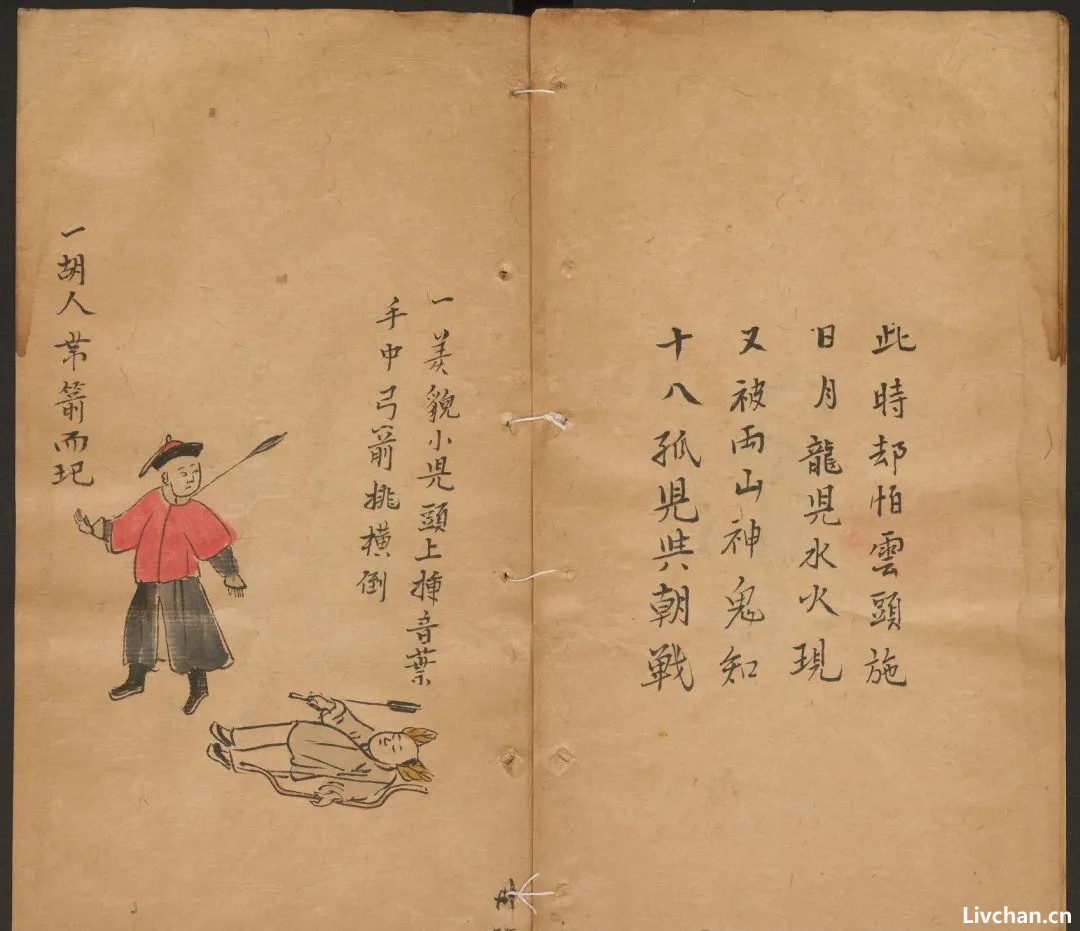 此時却怕雲頭施
日月龍兒水火現
又被兩山神鬼知
十八孤兒共朝戰
一美貌小兒頭上揷音葉
手中弓箭挑橫倒
一胡人帯箭而
Livchan.cn